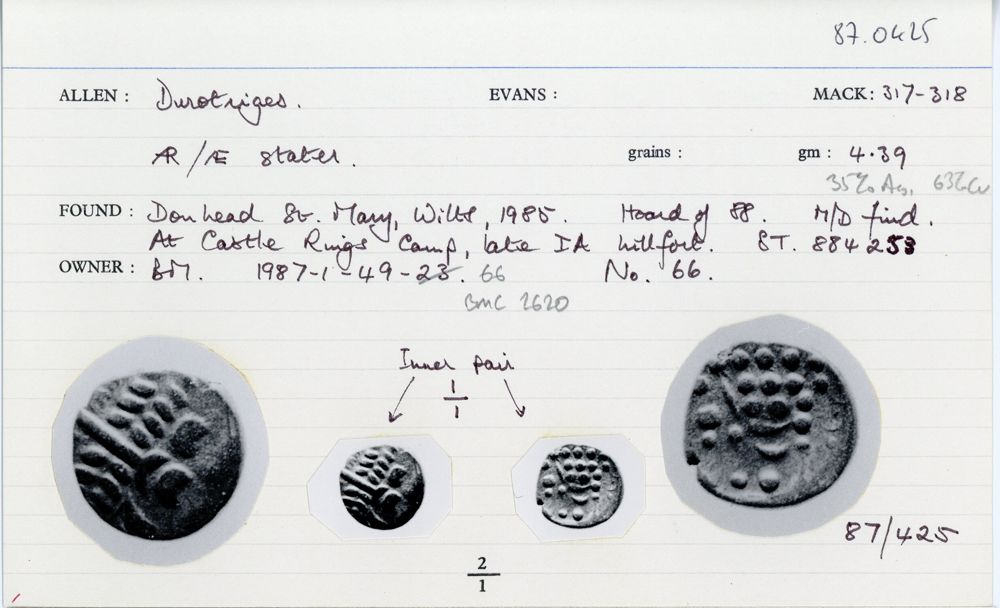 87.0425
ALLEN : Durotriges. EVANS : MACK: 317-318
AR/Æ stater. grains : gm : 4.39
35% Ag, 63% Cu
FOUND : Donhead St. Mary, Wilts, 1985. Hoard of 88. M/D find.
At Castle Rings Camp, late IA hillfort. ST. 884253
OWNER : BM. 1987-1-49-23. 66 No. 66.
BMC 2620
Inner pair
1/1
87/425
2/1